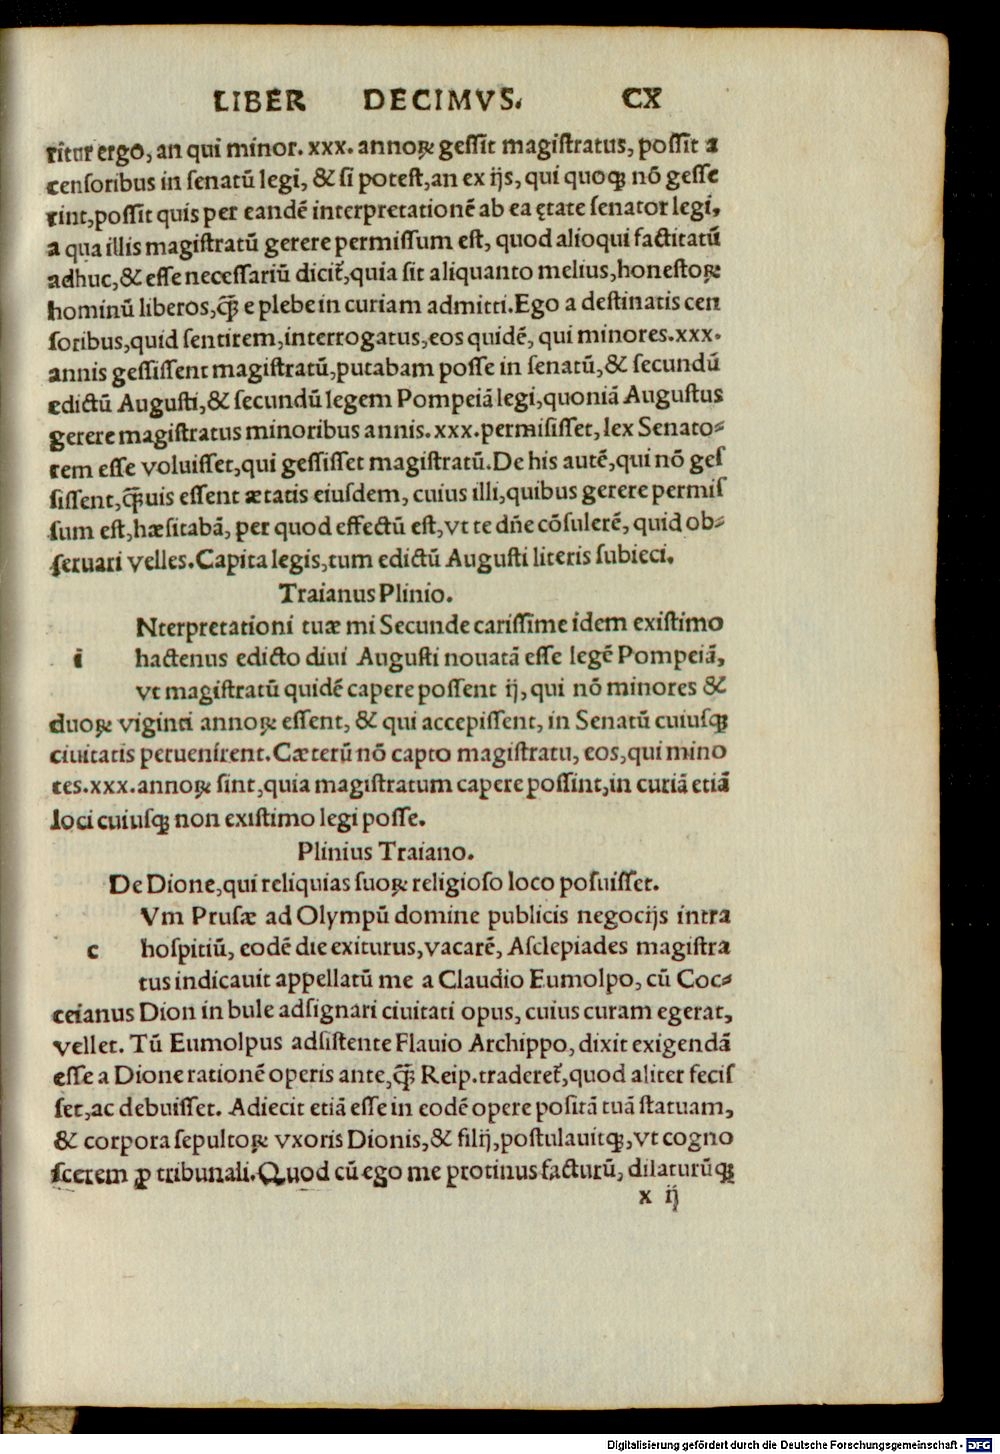 LIBER DECIMVS. CX
ritur ergo, an qui minor. xxx. annoꝝ geſſit magiſtratus, poſſit a
cenſoribus in ſenatū legi, & ſi poteſt, an ex ijs, qui quoqꝫ nō geſſe
rint, poſſit quis per eandē interpretationē ab ea ętate ſenator legi,
a qua illis magiſtratū gerere permiſſum eſt, quod alioqui factitatū
adhuc, & eſſe neceſſariū dicit᷑, quia ſit aliquanto melius, honeſtoꝝ
hominū liberos, q̄ꝫ e plebe in curiam admitti. Ego a deſtinatis cen
ſoribus, quid ſentirem, interrogatus, eos quidē, qui minores. xxx.
annis geſſiſſent magiſtratū, putabam poſſe in ſenatū, & ſecundū
edictū Auguſti, & ſecundū legem Pompeiā legi, quoniā Auguſtus
gerere magiſtratus minoribus annis. xxx. permiſiſſet, lex Senato⸗
rem eſſe voluiſſet, qui geſſiſſet magiſtratū. De his autē, qui nō geſ
ſiſſent, q̄ꝫuis eſſent ætatis eiuſdem, cuius illi, quibus gerere permiſ
ſum eſt, hæſitabā, per quod effectū eſt, vt te dn̄e cōſulerē, quid ob⸗
ſeruari velles. Capita legis, tum edictū Auguſti literis ſubieci.
Traianus Plinio.
Nterpretationi tuæ mi Secunde cariſſime idem exiſtimo
i hactenus edicto diui Auguſti nouatā eſſe legē Pompeiā,
vt magiſtratū quidē capere poſſent ij, qui nō minores &
duoꝝ viginti annoꝝ eſſent, & qui accepiſſent, in Senatū cuiuſqꝫ
ciuitatis peruenirent. Cæterū nō capto magiſtratu, eos, qui mino
res. xxx. annoꝝ ſint, quia magiſtratum capere poſſint, in curiā etiā
loci cuiuſqꝫ non exiſtimo legi poſſe.
Plinius Traiano.
De Dione, qui reliquias ſuoꝝ religioſo loco poſuiſſet.
Vm Pruſæ ad Olympū domine publicis negocijs intra
c hoſpitiū, eodē die exiturus, vacarē, Aſclepiades magiſtra
tus indicauit appellatū me a Claudio Eumolpo, cū Coc⸗
ceianus Dion in bule adſignari ciuitati opus, cuius curam egerat,
vellet. Tū Eumolpus adſiſtente Flauio Archippo, dixit exigendā
eſſe a Dione rationē operis ante, q̄ꝫ Reip. traderet᷑, quod aliter feciſ
ſet, ac debuiſſet. Adiecit etiā eſſe in eodē opere poſitā tuā ſtatuam,
& corpora ſepultoꝝ vxoris Dionis, & filij, poſtulauitqꝫ, vt cogno
ſcerem ꝓ tribunali. Quod cū ego me protinus facturū, dilaturūqꝫ
x ij
Digitalisierung gefördert durch die Deutsche Forschungsgemeinschaft - DFG